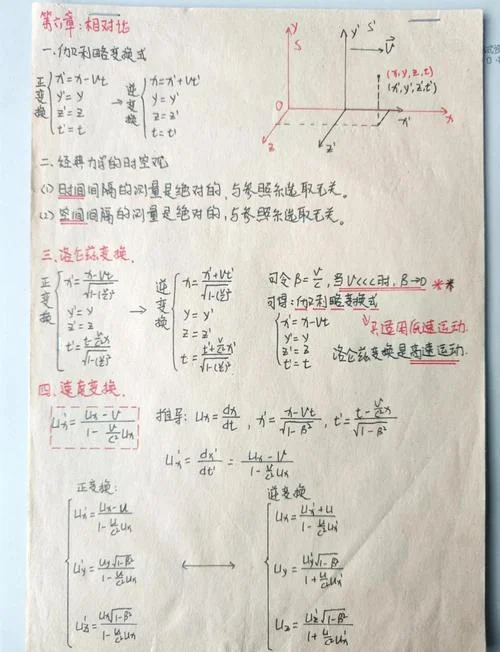 第六章：相对论
一.伽利略变换式
正变换 { x' = x - Vt
y' = y
z' = z
t' = t
→ 逆变换 { x = x' + Vt'
y = y'
z = z'
t = t'
y
S
y' S'
V
(x, y, z, t)
(x', y', z', t')
O
x'
x
z
z'
二.经典力学的时空观
(1) 时间间隔的测量是绝对的，与参照系选取无关。
(2) 空间间隔的测量是绝对的，与参照系选取无关。
三.洛仑兹变换.
正变换 { x' = (x - Vt)/√(1-(v/c)²)
y' = y
z' = z
→ 逆变换 { x = (x' + Vt')/√(1-(v/c)²)
y = y'
z = z'
可令 β = V/c, 当 V<<<c 时, β→0 **
可得: 伽利略变换式
{ x' = x - Vt
y' = y
z' = z
t' = t
只适用低速运动.
洛仑兹变换是高速运动.
四.速度变换.
Ux' = (Ux - V)/(1 - V/c² Ux)
推导: Ux = dx/dt , x' = (x - Vt)/√(1-β²) , t' = (t - V/c² x)/√(1-β²)
Ux' = dx'/dt' = (Ux - V)/(1 - V/c² Ux)
正变换:
Ux' = (Ux - u)/(1 - u/c² Ux)
Uy' = Uy√(1-β²)/(1 - u/c² Ux)
Uz' = Ux√(1-β²)/(1 - u/c² Ux)
逆变换
Ux = (Ux' + u)/(1 - u/c² Ux')
Uy = Uy'√(1-β²)/(1 + u/c² Ux')
Uz = Uz'√(1-β²)/(1 + u/c² Ux')